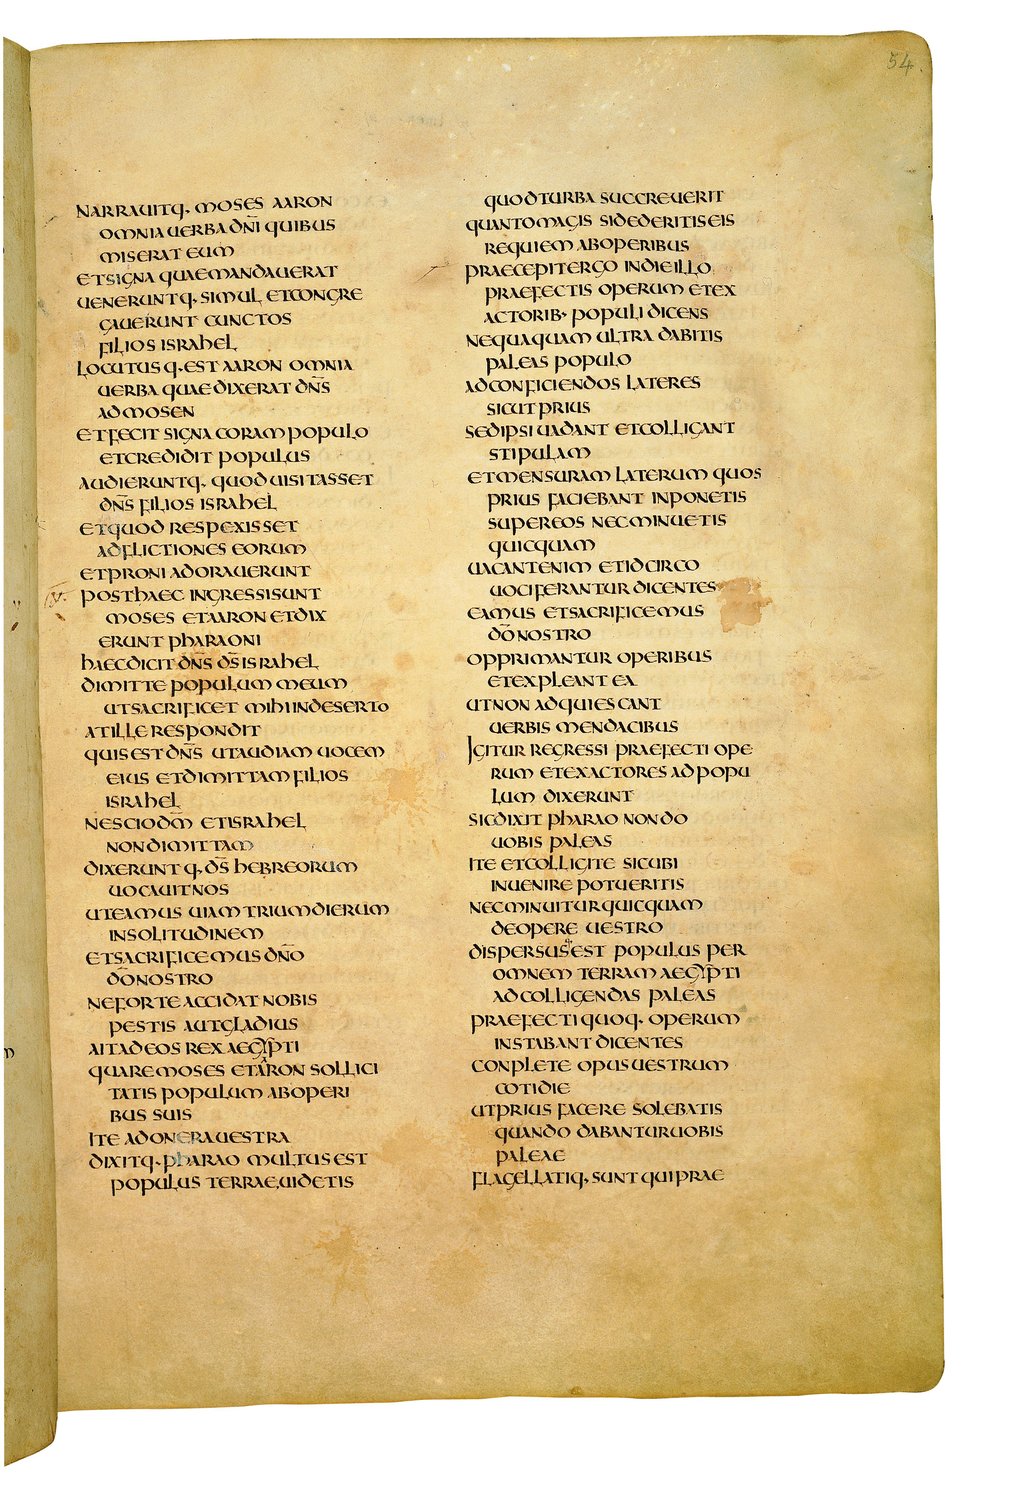 54.
NARRAUITQ· MOSES AARON
OMNIA UERBA DN̄I QUIBUS
MISERAT EUM
ET SIGNA QUAE MANDAUERAT
UENERUNTQ· SIMUL ET CONGRE
GAUERUNT CUNCTOS
FILIOS ISRAHEL
LOCUTUSQ· EST AARON OMNIA
UERBA QUAE DIXERAT DN̄S
AD MOSEN
ET FECIT SIGNA CORAM POPULO
ET CREDIDIT POPULUS
AUDIERUNTQ· QUOD UISITASSET
DN̄S FILIOS ISRAHEL
ET QUOD RESPEXISSET
ADFLICTIONES EORUM
ET PRONI ADORAUERUNT
V· POST HAEC INGRESSI SUNT
MOSES ET AARON ET DIX
ERUNT PHARAONI
HAEC DICIT DN̄S D̄S ISRAHEL
DIMITTE POPULUM MEUM
UT SACRIFICET MIHI IN DESERTO
AT ILLE RESPONDIT
QUIS EST DN̄S UT AUDIAM UOCEM
EIUS ET DIMITTAM FILIOS
ISRAHEL
NESCIO DN̄M ET ISRAHEL
NON DIMITTAM
DIXERUNTQ· D̄S HEBREORUM
UOCAUIT NOS
UT EAMUS UIAM TRIUM DIERUM
IN SOLITUDINEM
ET SACRIFICEMUS DN̄O
D̄O NOSTRO
NE FORTE ACCIDAT NOBIS
PESTIS AUT GLADIUS
AIT AD EOS REX AEGYPTI
QUARE MOSES ET AARON SOLLICI
TATIS POPULUM AB OPERI
BUS SUIS
ITE AD ONERA UESTRA
DIXITQ· PHARAO MULTUS EST
POPULUS TERRAE, UIDETIS
QUOD TURBA SUCCREUERIT
QUANTO MAGIS SI DEDERITIS EIS
REQUIEM AB OPERIBUS
PRAECEPIT ERGO IN DIE ILLO
PRAEFECTIS OPERUM ET EX
ACTORIB· POPULI DICENS
NEQUAQUAM ULTRA DABITIS
PALEAS POPULO
AD CONFICIENDOS LATERES
SICUT PRIUS
SED IPSI UADANT ET COLLIGANT
STIPULAM
ET MENSURAM LATERUM QUOS
PRIUS FACIEBANT INPONETIS
SUPER EOS NEC MINUETIS
QUICQUAM
UACANT ENIM ET IDCIRCO
UOCIFERANTUR DICENTES
EAMUS ET SACRIFICEMUS
D̄O NOSTRO
OPPRIMANTUR OPERIBUS
ET EXPLEANT EA
UT NON ADQUIESCANT
UERBIS MENDACIBUS
IGITUR REGRESSI PRAEFECTI OPE
RUM ET EXACTORES AD POPU
LUM DIXERUNT
SIC DIXIT PHARAO NON DO
UOBIS PALEAS
ITE ET COLLIGITE SICUBI
INUENIRE POTUERITIS
NEC MINUITUR QUICQUAM
DE OPERE UESTRO
DISPERSUSQ· EST POPULUS PER
OMNEM TERRAM AEGYPTI
AD COLLIGENDAS PALEAS
PRAEFECTI QUOQ· OPERUM
INSTABANT DICENTES
CONPLETE OPUS UESTRUM
COTIDIE
UT PRIUS FACERE SOLEBATIS
QUANDO DABANTUR UOBIS
PALEAE
FLAGELLATIQ· SUNT QUI PRAE